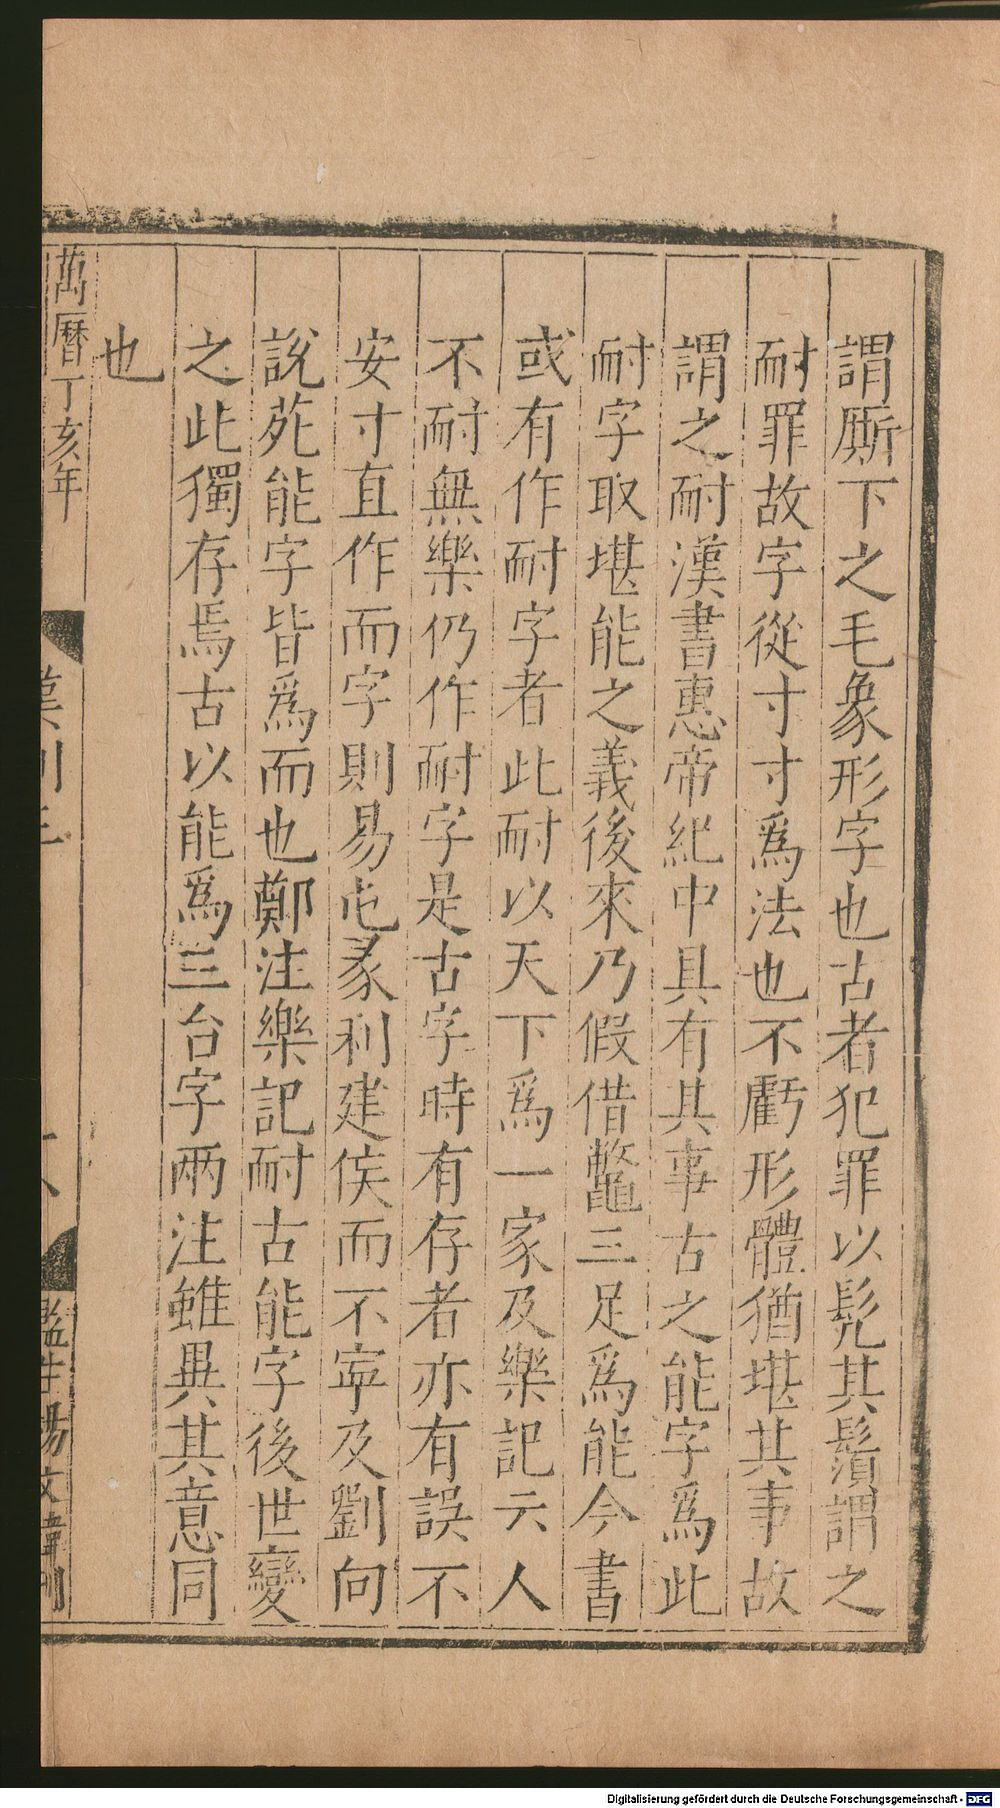 謂厮下之毛象形字也古者犯罪以髡其鬚謂之
耐罪故字從寸寸爲法也不虧形體猶堪其事故
謂之耐漢書惠帝紀中具有其事古之能字爲此
耐字取堪能之義後來乃假借鼈三足爲能今書
或有作耐字者此耐以天下爲一家及樂記云人
不耐無樂仍作耐字是古字時有存者亦有誤不
安寸直作而字則易屯彖利建侯而不寜及劉向
說苑能字皆爲而也鄭注樂記耐古能字後世變
之此獨存焉古以能爲三台字兩注雖異其意同
也
萬曆丁亥年
監生楊文煒刊
Digitalisierung gefördert durch die Deutsche Forschungsgemeinschaft - DFG